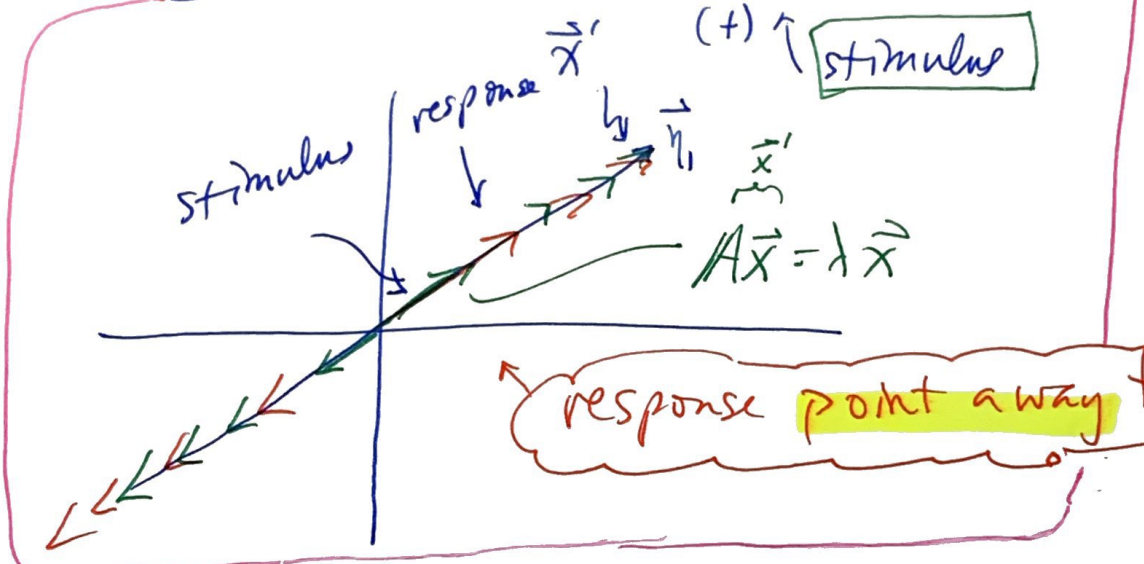 (+) ↑
stimulus
response x⃗'
stimulus
η⃗₁
x⃗'
Ax⃗ = λx⃗
response point away